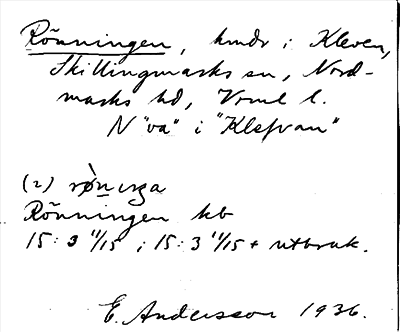 Rönningen, hmdr i Kleven,
Skillingmarks sn, Nord-
marks hd, Vrml l.
N "va" i "Klefvan"
(2) rø̀niŋa
Rönningen kb
15:3 11/15 i 15:3 11/15 + utbruk.
E. Andersson 1936.